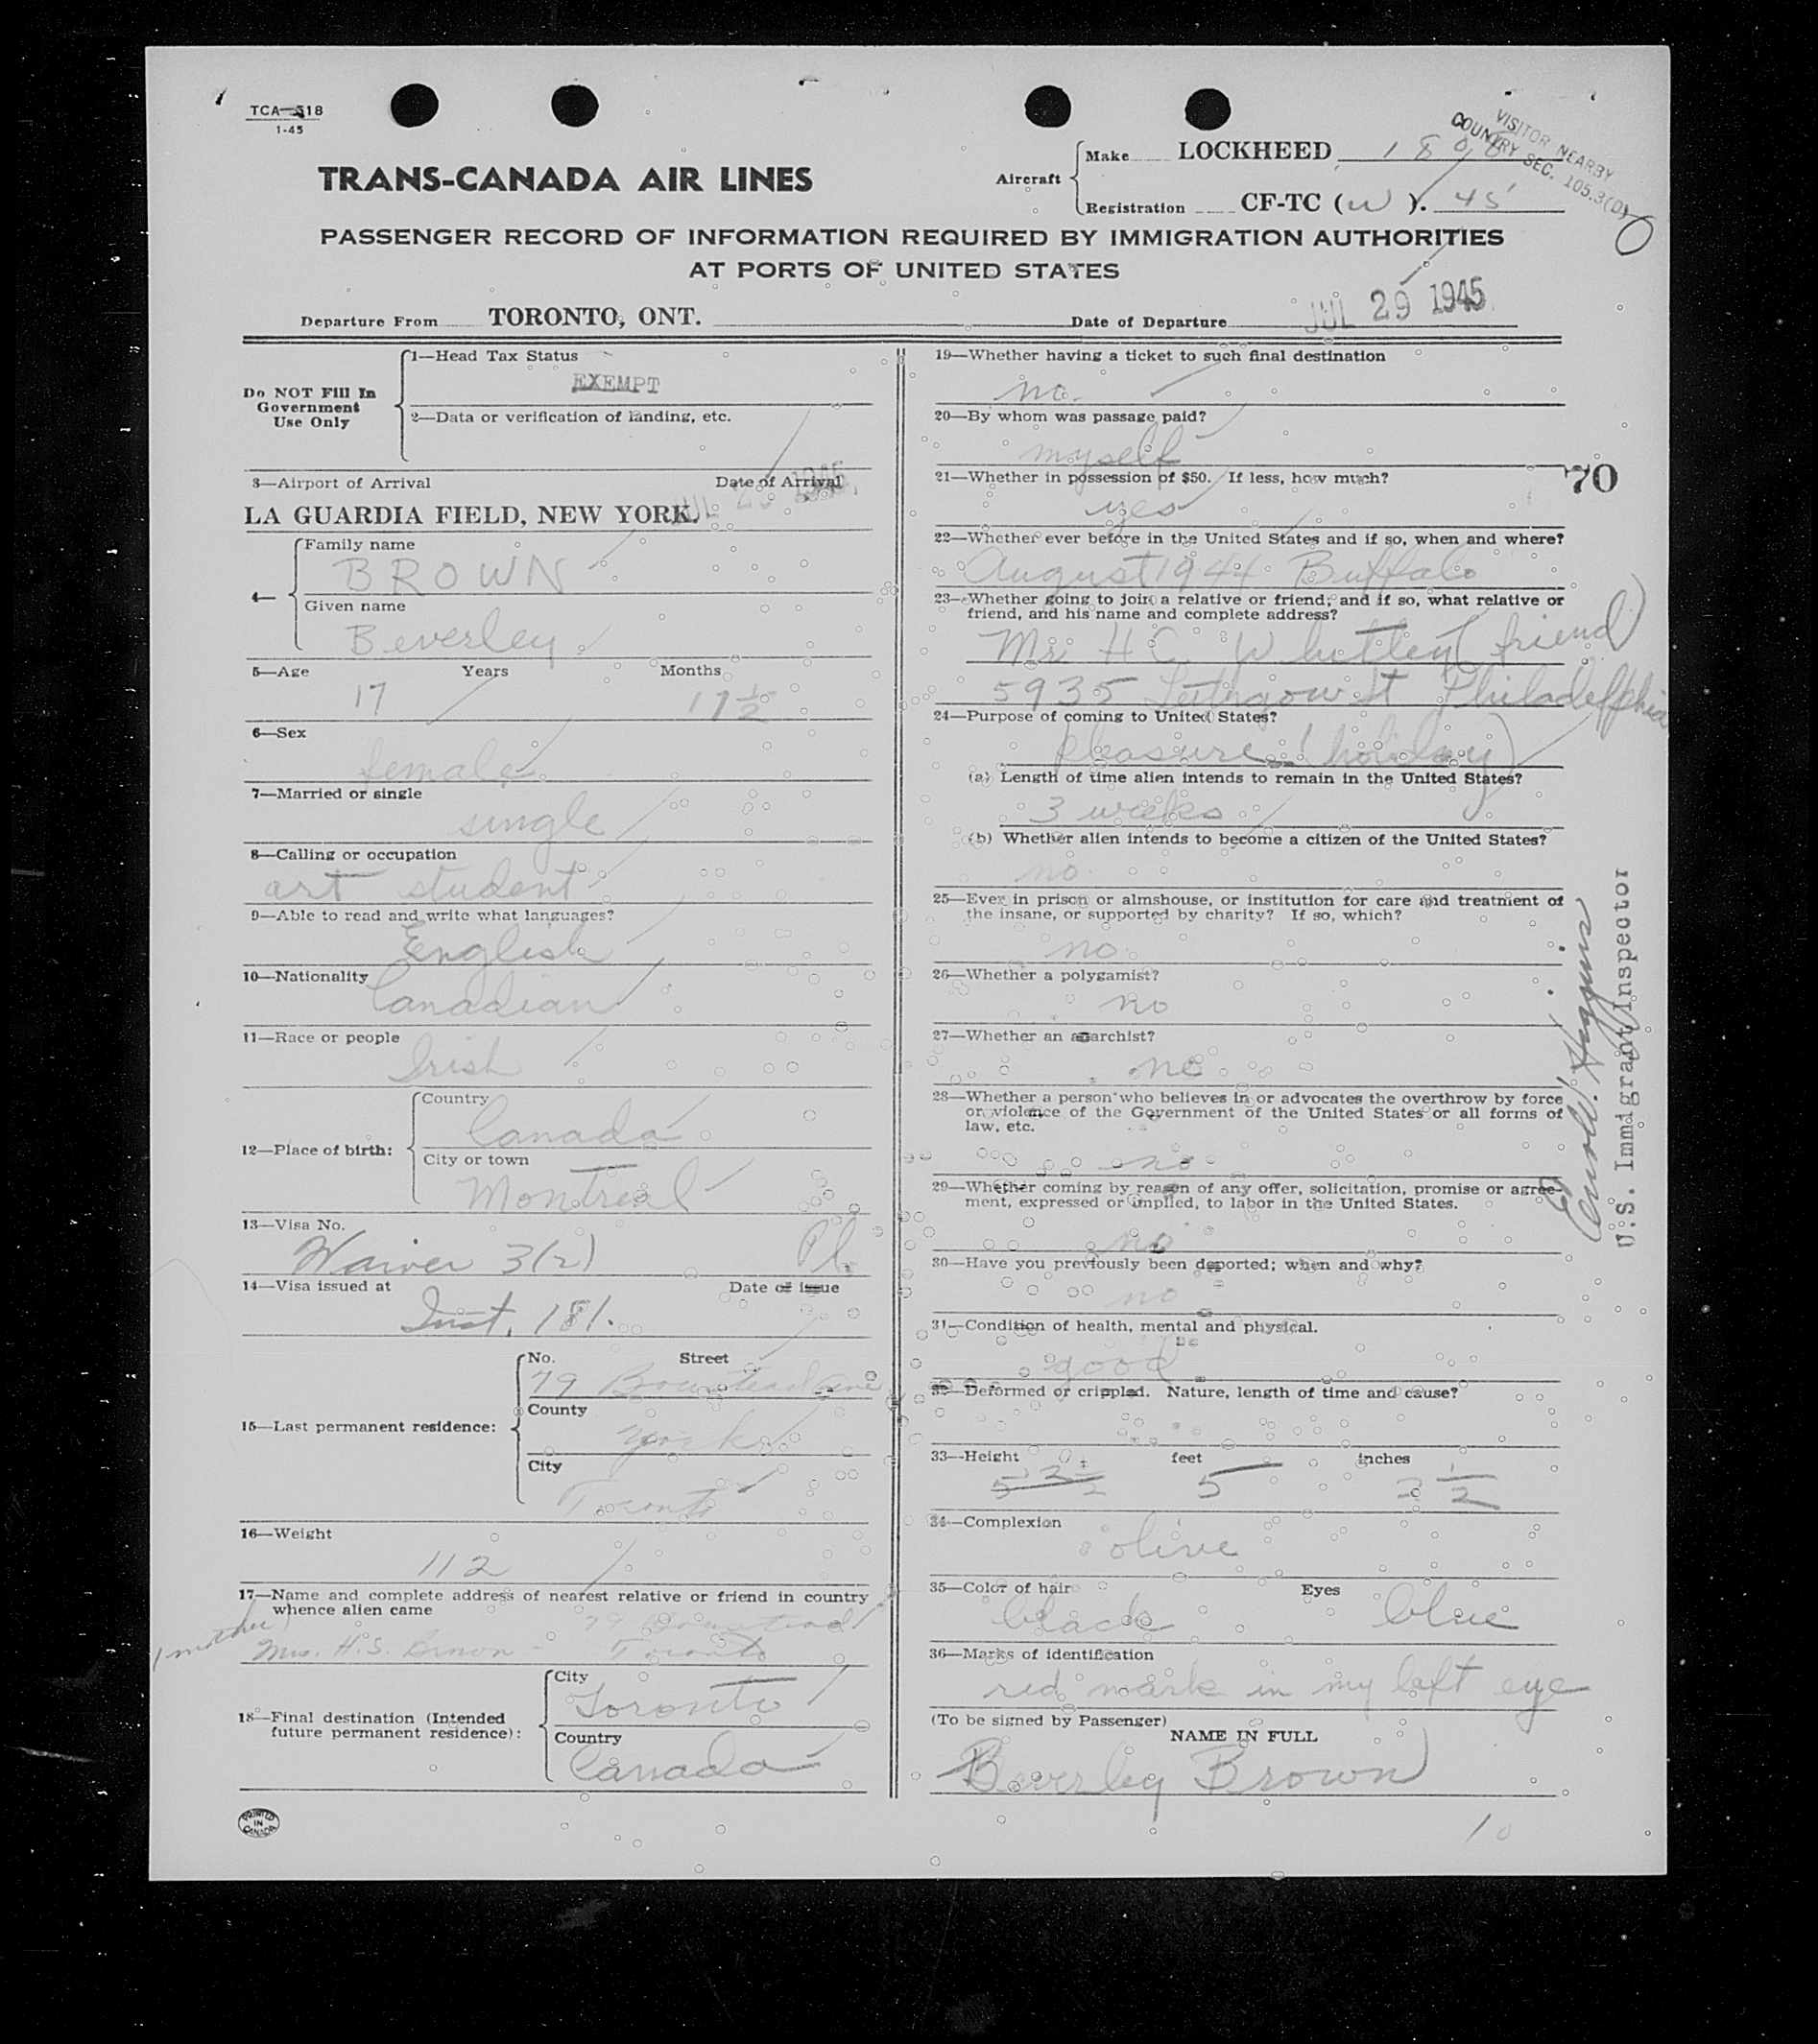 TCA-518
1-45
VISITOR NEARBY
COUNTRY SEC. 105.3(D)
TRANS-CANADA AIR LINES
Aircraft
Make LOCKHEED 1808
Registration CF-TC (W). 45'
PASSENGER RECORD OF INFORMATION REQUIRED BY IMMIGRATION AUTHORITIES
AT PORTS OF UNITED STATES
Departure From TORONTO, ONT. Date of Departure JUL 29 1945
Do NOT Fill In
Government
Use Only
1—Head Tax Status
EXEMPT
2—Data or verification of landing, etc.
3—Airport of Arrival Date of Arrival
LA GUARDIA FIELD, NEW YORK. JUL 29 1945
4—
Family name
BROWN
Given name
Beverley
5—Age Years Months
17 11 1/2
6—Sex
female
7—Married or single
single
8—Calling or occupation
art student
9—Able to read and write what languages?
English
10—Nationality
Canadian
11—Race or people
Irish
12—Place of birth:
Country
Canada
City or town
Montreal
13—Visa No.
Waiver 3(2) Pl.
14—Visa issued at Date of issue
Inst. 181.
15—Last permanent residence:
No. Street
79
County
York
City
Toronto
16—Weight
112
17—Name and complete address of nearest relative or friend in country
whence alien came
79
(mother)
Mrs. H.S. Brown - Toronto
18—Final destination (Intended
future permanent residence):
City
Toronto
Country
Canada
PRINTED
IN
CANADA
19—Whether having a ticket to such final destination
no.
20—By whom was passage paid?
myself
21—Whether in possession of $50. If less, how much?
yes
70
22—Whether ever before in the United States and if so, when and where?
August 1944 Buffalo
23—Whether going to join a relative or friend; and if so, what relative or
friend, and his name and complete address?
Mr. H C Whitley (friend)
5935 Lethgow St Philadelphia
24—Purpose of coming to United States?
pleasure (holiday)
(a) Length of time alien intends to remain in the United States?
3 weeks
(b) Whether alien intends to become a citizen of the United States?
no
25—Ever in prison or almshouse, or institution for care and treatment of
the insane, or supported by charity? If so, which?
no
26—Whether a polygamist?
no
27—Whether an anarchist?
no
28—Whether a person who believes in or advocates the overthrow by force
or violence of the Government of the United States or all forms of
law, etc.
no
29—Whether coming by reason of any offer, solicitation, promise or agree-
ment, expressed or implied, to labor in the United States.
no
30—Have you previously been deported; when and why?
no
31—Condition of health, mental and physical.
good
32—Deformed or crippled. Nature, length of time and cause?
33—Height feet inches
5 3 1/2 5 3 1/2
34—Complexion
olive
35—Color of hair Eyes
black blue
36—Marks of identification
red mark in my left eye
(To be signed by Passenger)
NAME IN FULL
Beverley Brown
10
Higgins
U.S. Immigrant Inspector